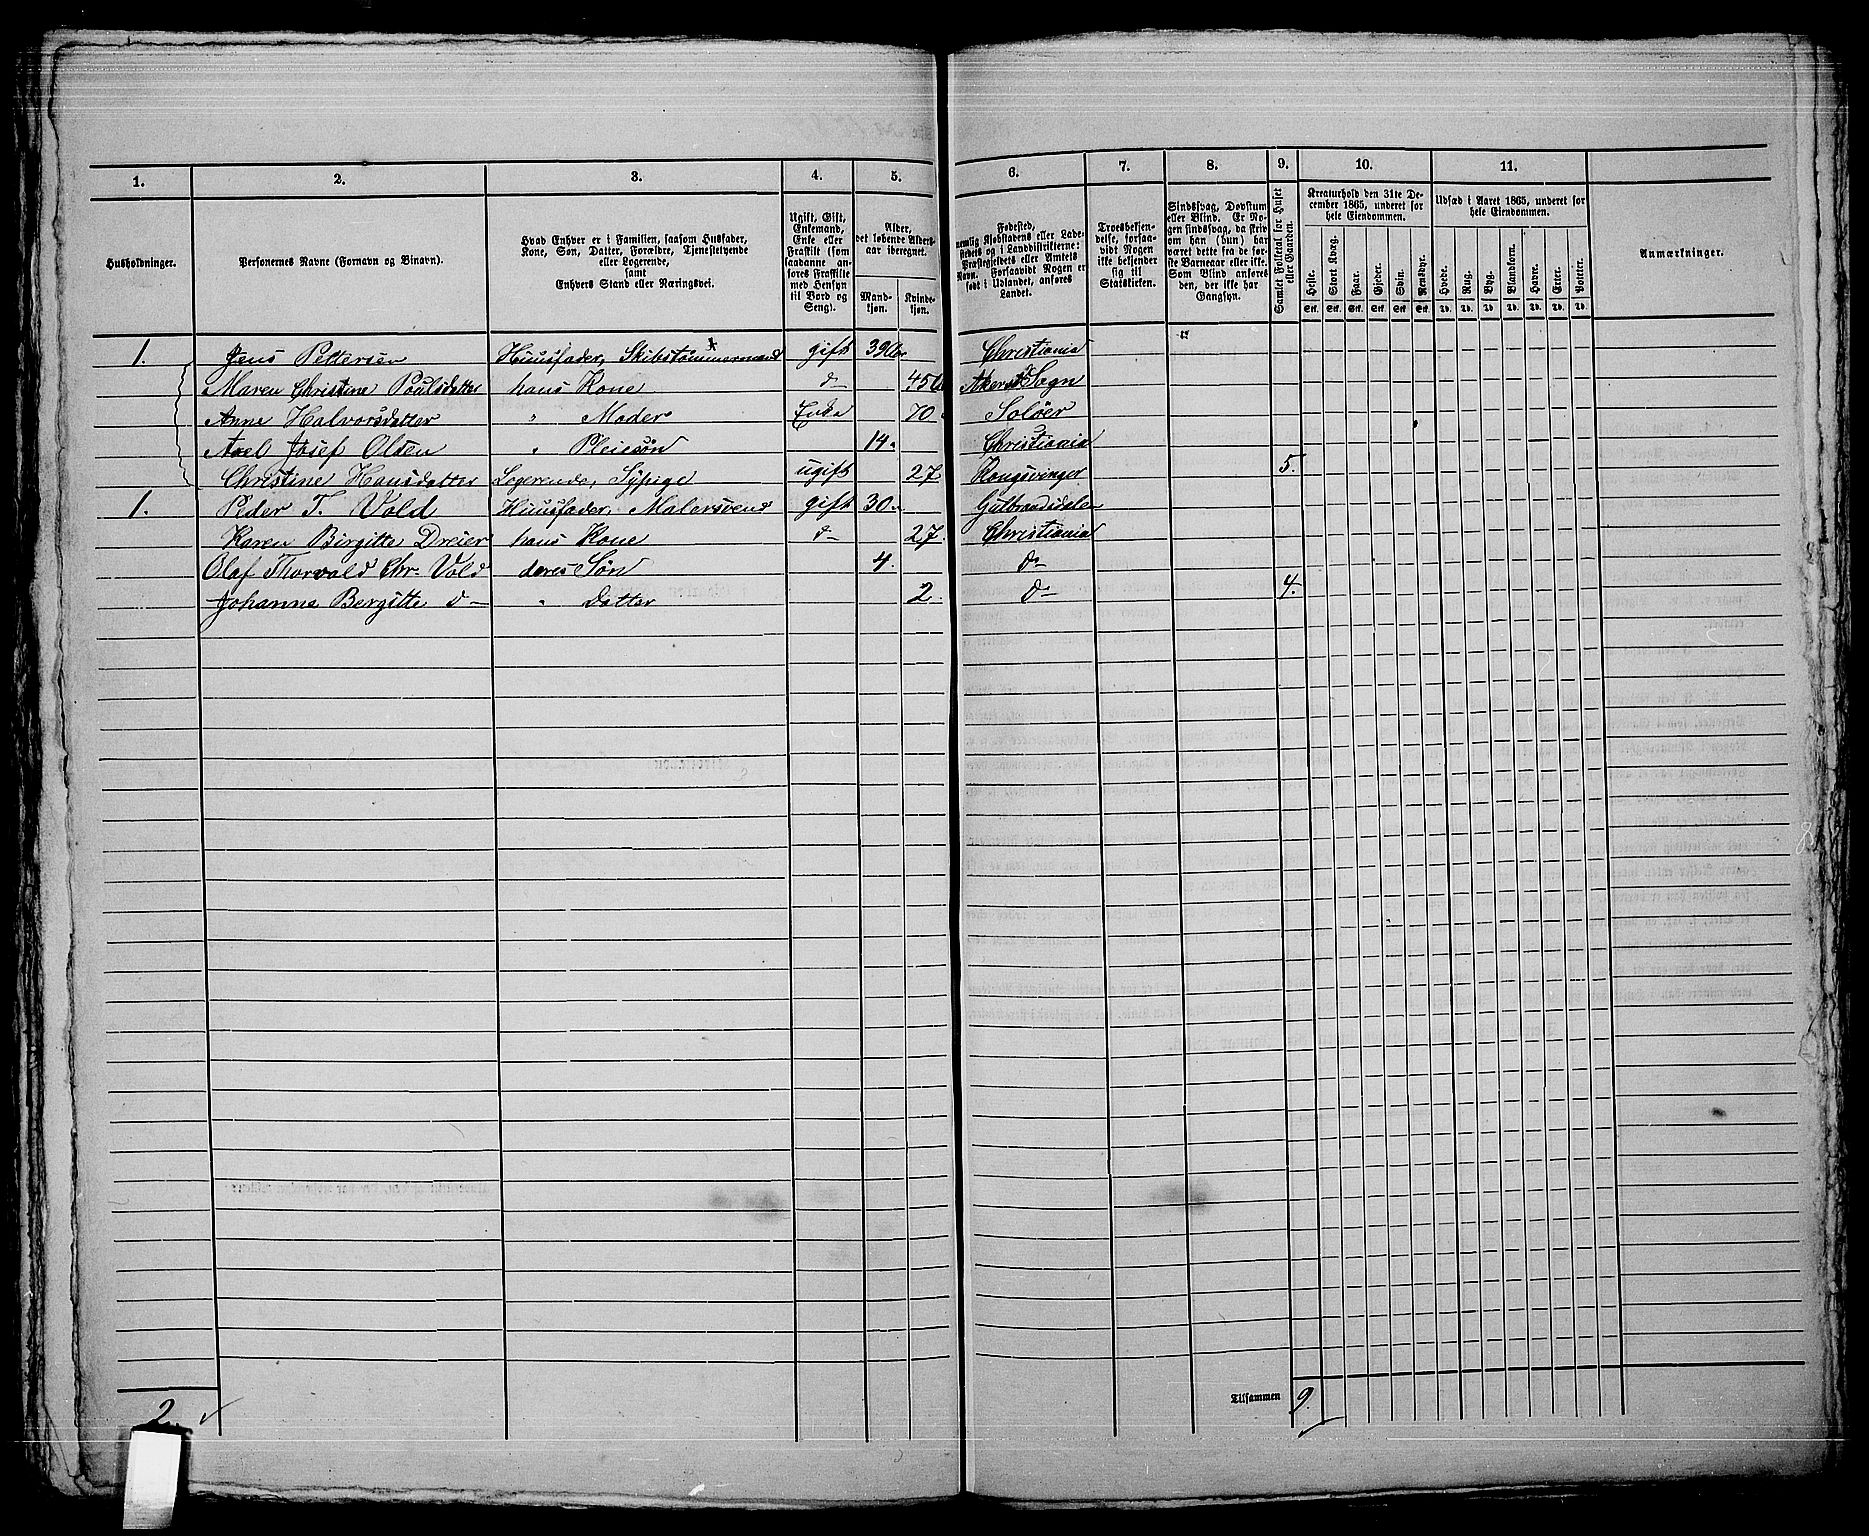 1. 2. 3. 4. 5. 6. 7. 8. 9. 10. 11.
Husholdninger.
Personernes Navne (Fornavn og Binavn).
Hvad Enhver er i Familien, saasom Husfader,
Kone, Søn, Datter, Forældre, Tjenestetyende
eller Logerende,
samt
Enhvers Stand eller Næringsvei.
Ugift, Gift,
Enkemand,
Enke eller
Fraskilt (som
saadanne an-
føres Fraskilte
med Hensyn
til Bord og
Seng).
Alder,
det løbende Alders-
aar iberegnet.
Mand-
kjøn.
Kvinde-
kjøn.
Fødested,
nemlig Kjøbstadens eller Lade-
stedets og i Landdistrikterne:
Præstegjeldets eller Amtets
Navn. Forsaavidt Nogen er
født i Udlandet, anføres
Landet.
Troesbekjen-
delse, forsaa-
vidt Nogen
ikke bekjender
sig til
Statskirken.
Sindssvag, Døvstum
eller Blind. Er No-
gen sindssvag, da skriv
om han (hun) har
været dette fra de før-
ste Barneaar eller ikke.
Som Blind anføres
den, der ikke har
Gangsyn.
Samlet Folketal for Huset
eller Gaarden.
Kreaturhold den 31te De-
cember 1865, underet for
hele Eiendommen.
Heste. Stort Kvæg. Faar. Gjeder. Svin. Rensdyr.
Stk. Stk. Stk. Stk. Stk. Stk.
Udsæd i Aaret 1865, underet for
hele Eiendommen.
Hvede. Rug. Byg. Blandkorn. Havre. Erter. Poteter.
Td. Td. Td. Td. Td. Td. Td.
Anmærkninger.
1. Jens Pettersen Huusfader, Skibstømmermand gift 39 Christiania
Maren Christine Poulsdatter hans Kone d- 45 Akers Sogn
Anne Halvorsdatter " Moder Enke 70 Soløer
Axel Josef Olsen " Pleiesøn 14 Christiania
Christine Hansdatter Logerende, Sypige ugift 27 Kongsvinger 5.
1. Peder T. Vold Huusfader, Malersvend gift 30 Gulbrandsdalen
Karen Birgitte Dreier hans Kone d- 27 Christiania
Olaf Thorvald Chr. Vold deres Søn 4. d-
Johanne Bergitte d- " Datter 2 d- 4.
2. Tilsammen 9.